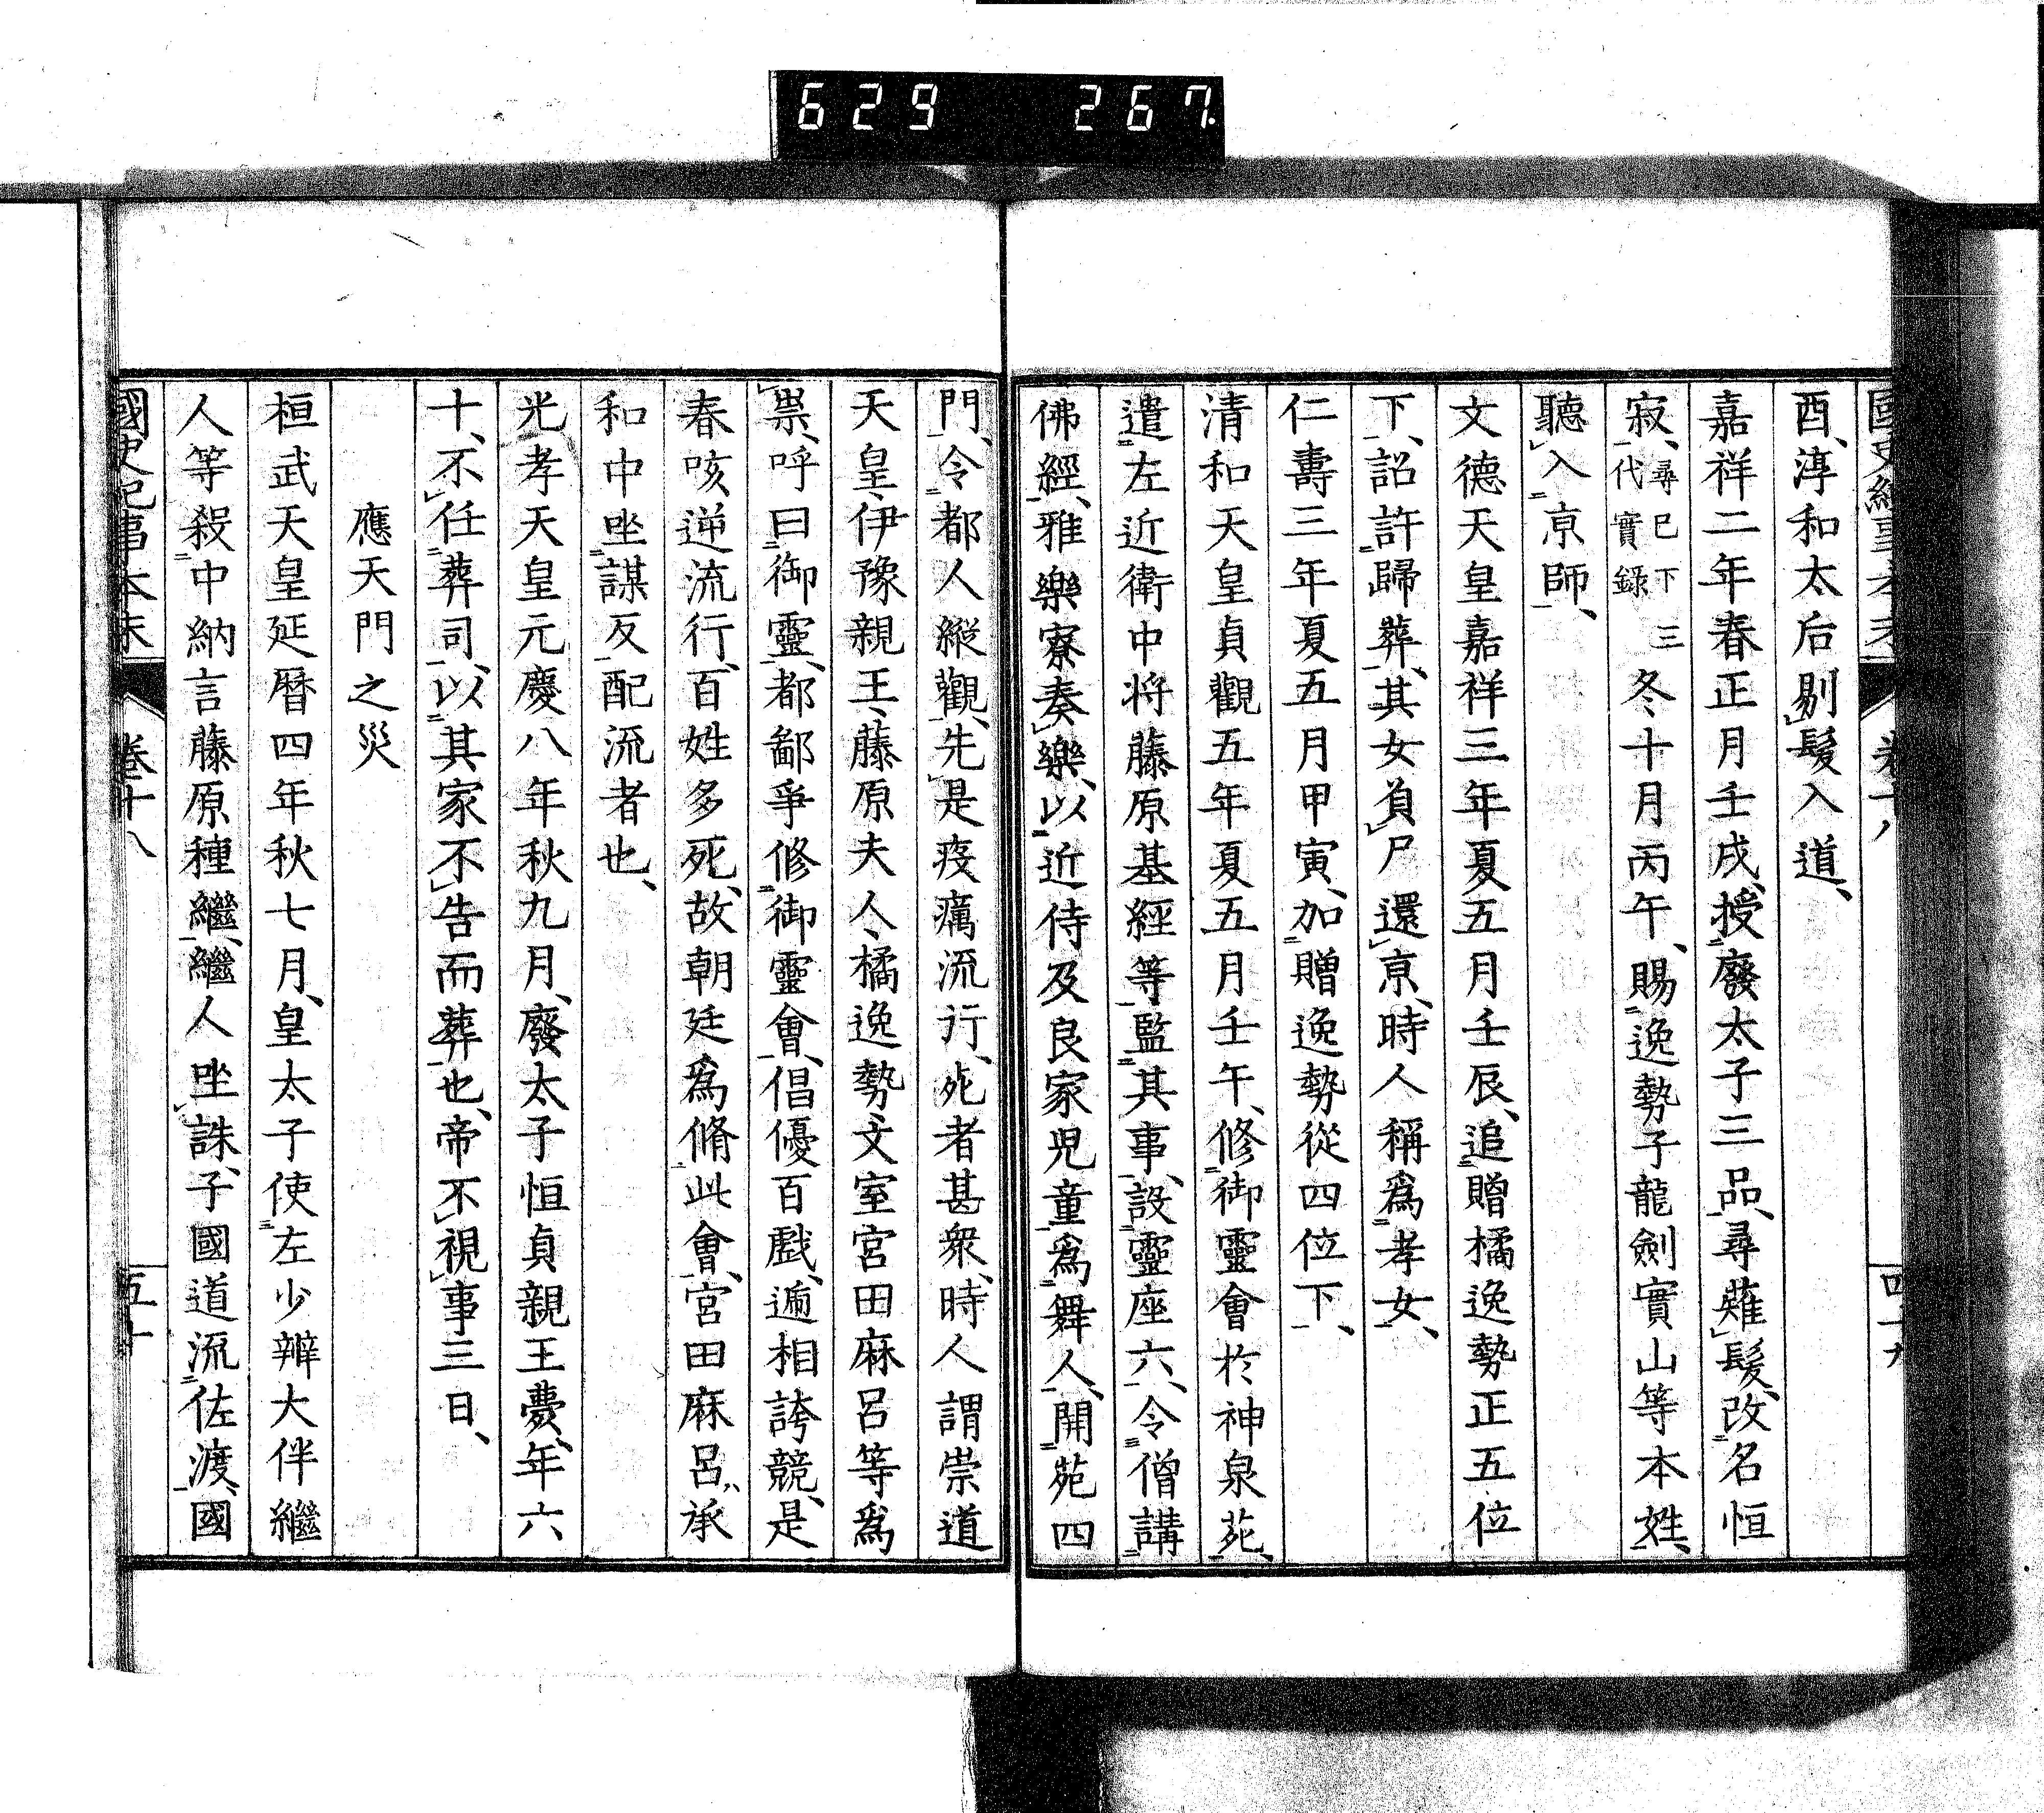 629 267
國史紀事本末 卷十八 四十九
酉、淳和太后剔髮入道、
嘉祥二年春正月壬戌、授廢太子三品、尋薙髮、改名恒
寂、尋已下三代實錄 冬十月丙午、賜逸勢子龍劍實山等本姓、
聽入京師、
文德天皇嘉祥三年夏五月壬辰、追贈橘逸勢正五位
下、詔許歸葬、其女負尸還京、時人稱爲孝女、
仁壽三年夏五月甲寅、加贈逸勢從四位下、
清和天皇貞觀五年夏五月壬午、修御靈會於神泉苑、
遣左近衛中将藤原基經等監其事、設靈座六、令僧講
佛經、雅樂寮奏樂、以近侍及良家児童爲舞人、開苑四
門、令都人縱觀、先是疫癘流行、死者甚衆、時人謂崇道
天皇、伊豫親王、藤原夫人、橘逸勢、文室宮田麻呂等爲
祟、呼曰御靈、都鄙爭修御靈會、倡優百戲、遞相誇競、是
春咳逆流行、百姓多死、故朝廷爲脩此會、宮田麻呂、承
和中坐謀反配流者也、
光孝天皇元慶八年秋九月、廢太子恒貞親王薨、年六
十、不任葬司、以其家不告而葬也、帝不視事三日、
應天門之災
桓武天皇延暦四年秋七月、皇太子使左少辨大伴繼
人等殺中納言藤原種繼、繼人坐誅、子國道流佐渡、國
國史紀事本末 卷十八 五十